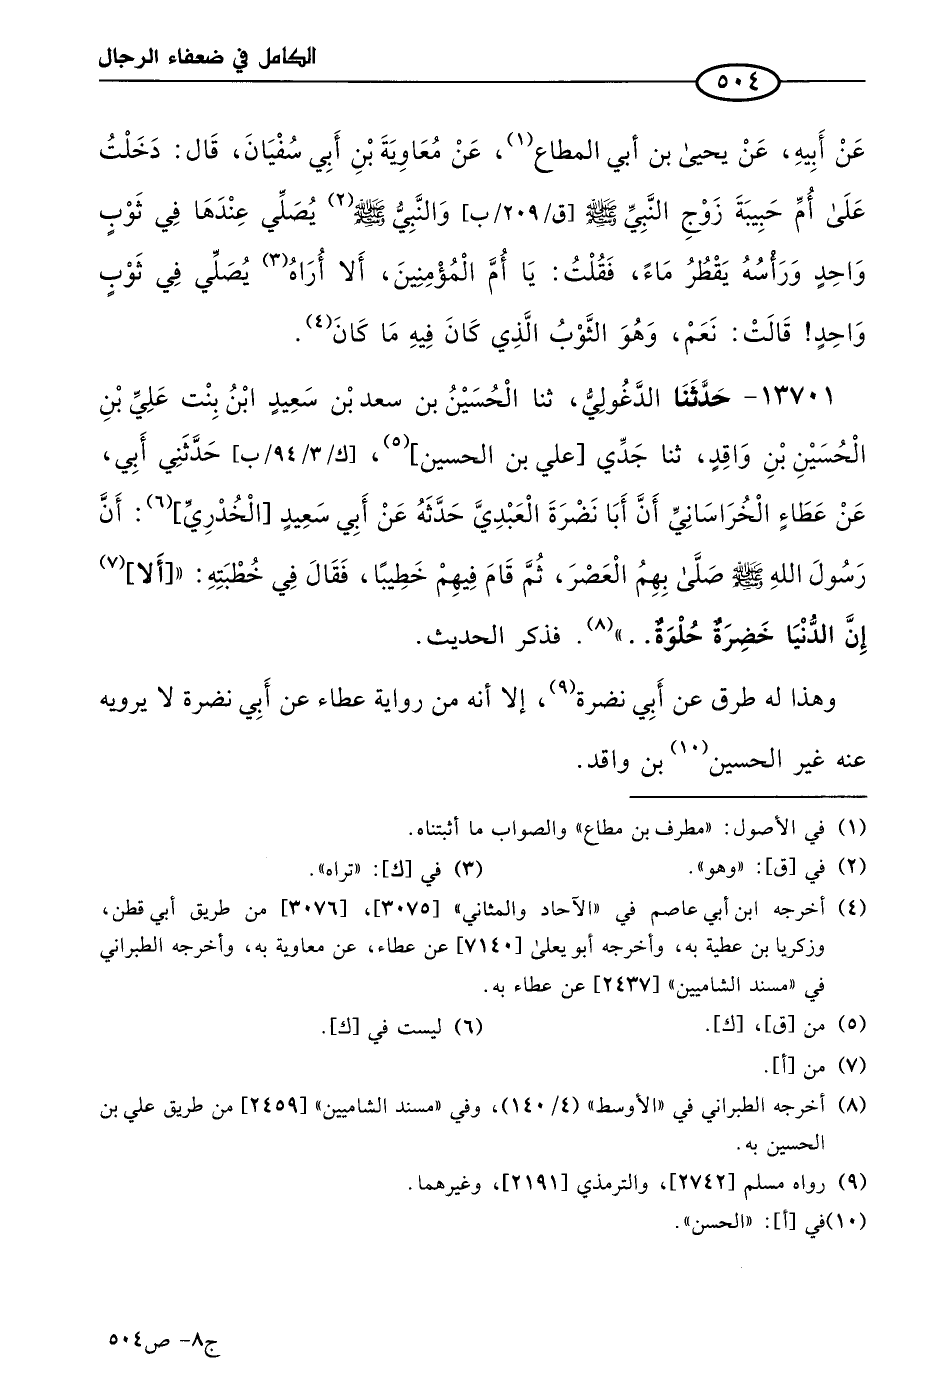 الكامل في ضعفاء الرجال
٥٠٤
عَنْ أَبِيهِ، عَنْ يحيىٰ بن أبي المطاع(١)، عَنْ مُعَاوِيَةَ بْنِ أَبِي سُفْيَانَ، قَال: دَخَلْتُ
عَلَىٰ أُمِّ حَبِيبَةَ زَوْجِ النَّبِيِّ ﷺ [ق/٢٠٩/ب] وَالنَّبِيُّ ﷺ(٢) يُصَلِّي عِنْدَهَا فِي ثَوْبٍ
وَاحِدٍ وَرَأْسُهُ يَقْطُرُ مَاءً، فَقُلْتُ: يَا أُمَّ الْمُؤْمِنِينَ، أَلا أُرَاهُ(٣) يُصَلِّي فِي ثَوْبٍ
وَاحِدٍ! قَالَتْ: نَعَمْ، وَهُوَ الثَّوْبُ الَّذِي كَانَ فِيهِ مَا كَانَ(٤).
١٣٧٠١- حَدَّثَنَا الدَّغُولِيُّ، ثنا الْحُسَيْنُ بن سعد بْن سَعِيدٍ ابْنُ بِنْت عَلِيِّ بْنِ
الْحُسَيْنِ بْنِ وَاقِدٍ، ثنا جَدِّي [علي بن الحسين](٥)، [ك/٩٤/٣/ب] حَدَّثَنِي أَبِي،
عَنْ عَطَاءٍ الْخُرَاسَانِيِّ أَنَّ أَبَا نَضْرَةَ الْعَبْدِيَّ حَدَّثَهُ عَنْ أَبِي سَعِيدٍ [الْخُدْرِيِّ](٦): أَنَّ
رَسُولَ اللهِ ﷺ صَلَّىٰ بِهِمُ الْعَصْرَ، ثُمَّ قَامَ فِيهِمْ خَطِيبًا، فَقَالَ فِي خُطْبَتِهِ: «[أَلا](٧)
إِنَّ الدُّنْيَا خَضِرَةٌ حُلْوَةٌ..»(٨). فذكر الحديث.
وهذا له طرق عن أَبِي نضرة(٩)، إلا أنه من رواية عطاء عن أَبِي نضرة لا يرويه
عنه غير الحسين(١٠) بن واقد.
(١) في الأصول: «مطرف بن مطاع» والصواب ما أثبتناه.
(٢) في [ق]: «وهو». (٣) في [ك]: «تراه».
(٤) أخرجه ابن أبي عاصم في «الآحاد والمثاني» [٣٠٧٥]، [٣٠٧٦] من طريق أبي قطن،
وزكريا بن عطية به، وأخرجه أبو يعلىٰ [٧١٤٠] عن عطاء، عن معاوية به، وأخرجه الطبراني
في «مسند الشاميين» [٢٤٣٧] عن عطاء به.
(٥) من [ق]، [ك]. (٦) ليست في [ك].
(٧) من [أ].
(٨) أخرجه الطبراني في «الأوسط» (١٤٠/٤)، وفي «مسند الشاميين» [٢٤٥٩] من طريق علي بن
الحسين به.
(٩) رواه مسلم [٢٧٤٢]، والترمذي [٢١٩١]، وغيرهما.
(١٠)في [أ]: «الحسن».
ج٨- ص٥٠٤